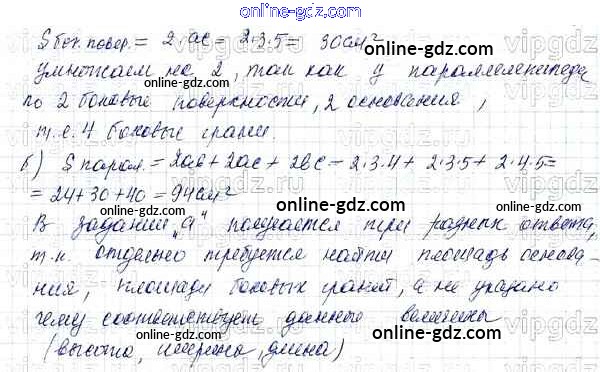 online-gdz.com
S бок.повер. = 2·ac = 2·3·5 = 30 см²
online-gdz.com
Умножаем на 2, так как у параллелепипеда
по 2 боковые поверхности, 2 основания,
т.е. 4 боковые грани.
online-gdz.com
б) S парал. = 2ab + 2ac + 2bc = 2·3·4 + 2·3·5 + 2·4·5 =
= 24 + 30 + 40 = 94 см²
online-gdz.com
В задании "а" получается три разных ответа,
т.к. отдельно требуется найти площадь основа-
ния, площади боковых граней, а не указано
online-gdz.com
чему соответствует данные величины
online-gdz.com
(высота, ширина, длина)